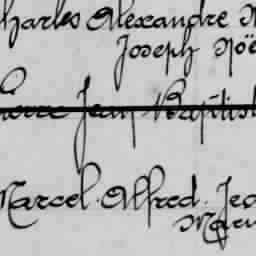 Charles Alexandre
Joseph Noë
Pierre Jean Baptist
Marcel. Alfred. Jea
Mar